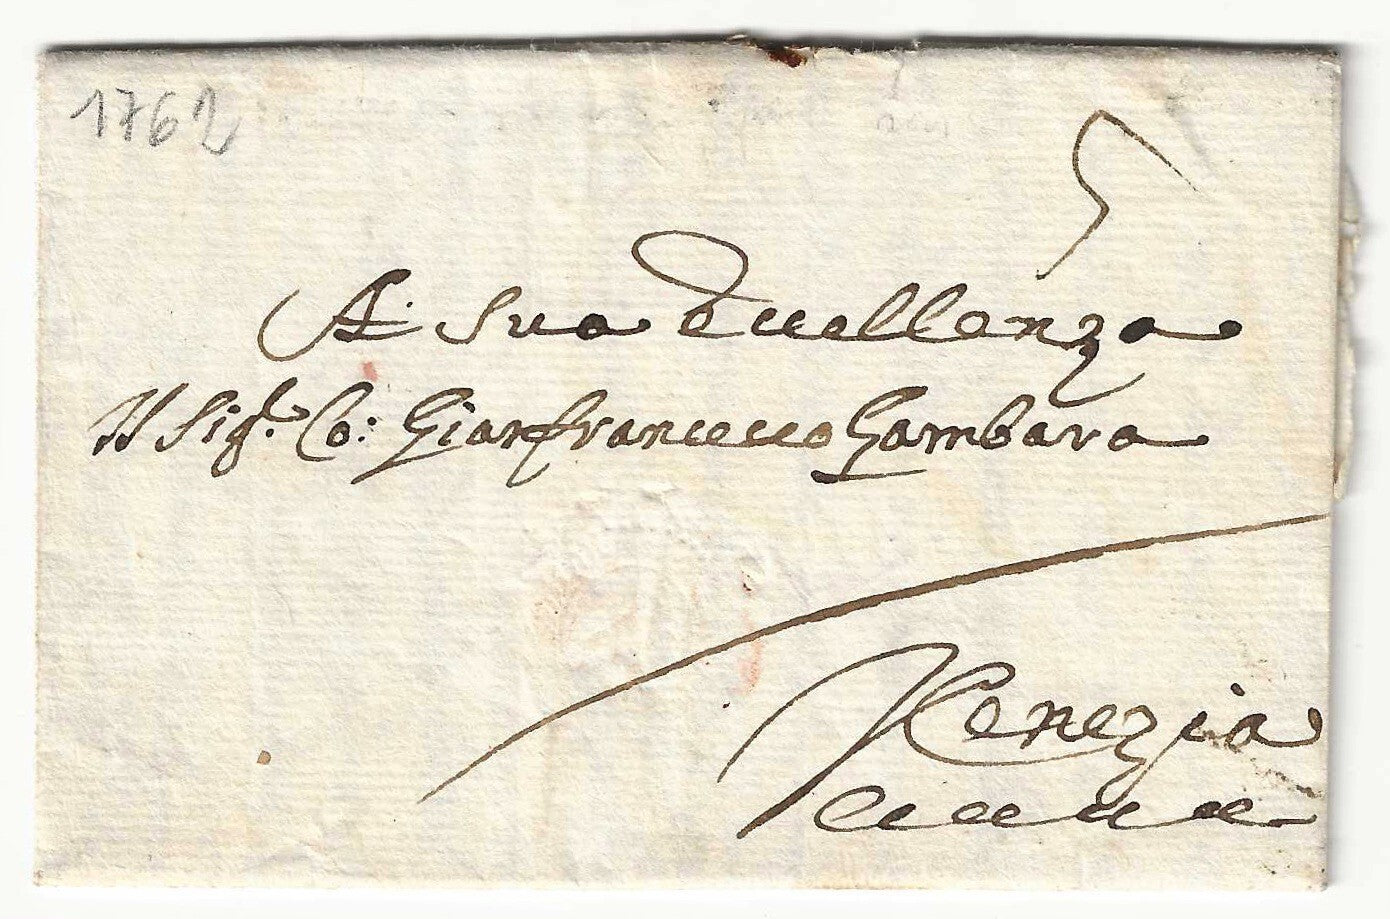 1762
A Sua Eccellenza
Il Sigr. Co: Gianfrancesco Gambara
Venezia